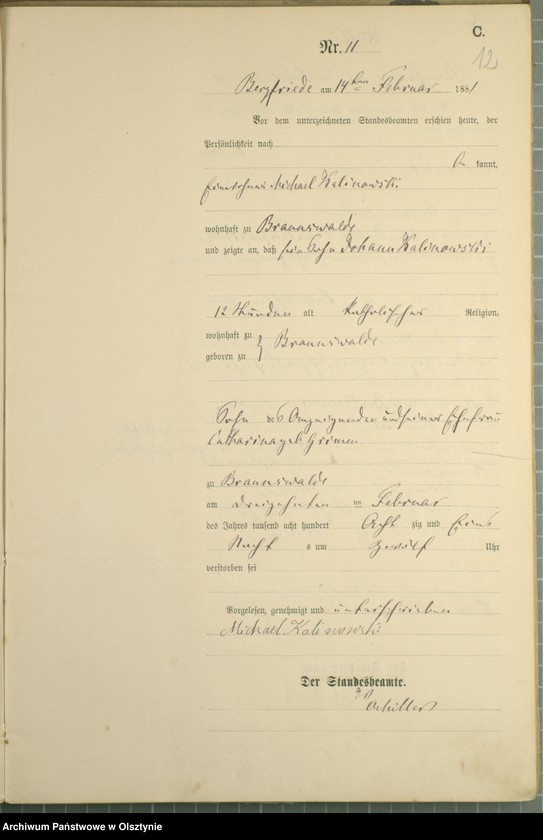 C.
12
Nr. 11
Bergfriede am 14ten Februar 1881
Vor dem unterzeichneten Standesbeamten erschien heute, der
Persönlichkeit nach
be kannt,
Michael Kalinowski
wohnhaft zu Braunswalde
und zeigte an, daß sein Sohn Johann Kalinowski
12 Stunden alt katholischer Religion,
wohnhaft zu
geboren zu } Braunswalde
Sohn des Anzeigenden und seiner Ehefrau
Catharina geb
zu Braunswalde
am dreizehnten ten Februar
des Jahres tausend acht hundert Acht zig und Eins
Nacht s um zwölf Uhr
verstorben sei
Vorgelesen, genehmigt und unterschrieben
Michael Kalinowski
Der Standesbeamte.
Archiwum Państwowe w Olsztynie